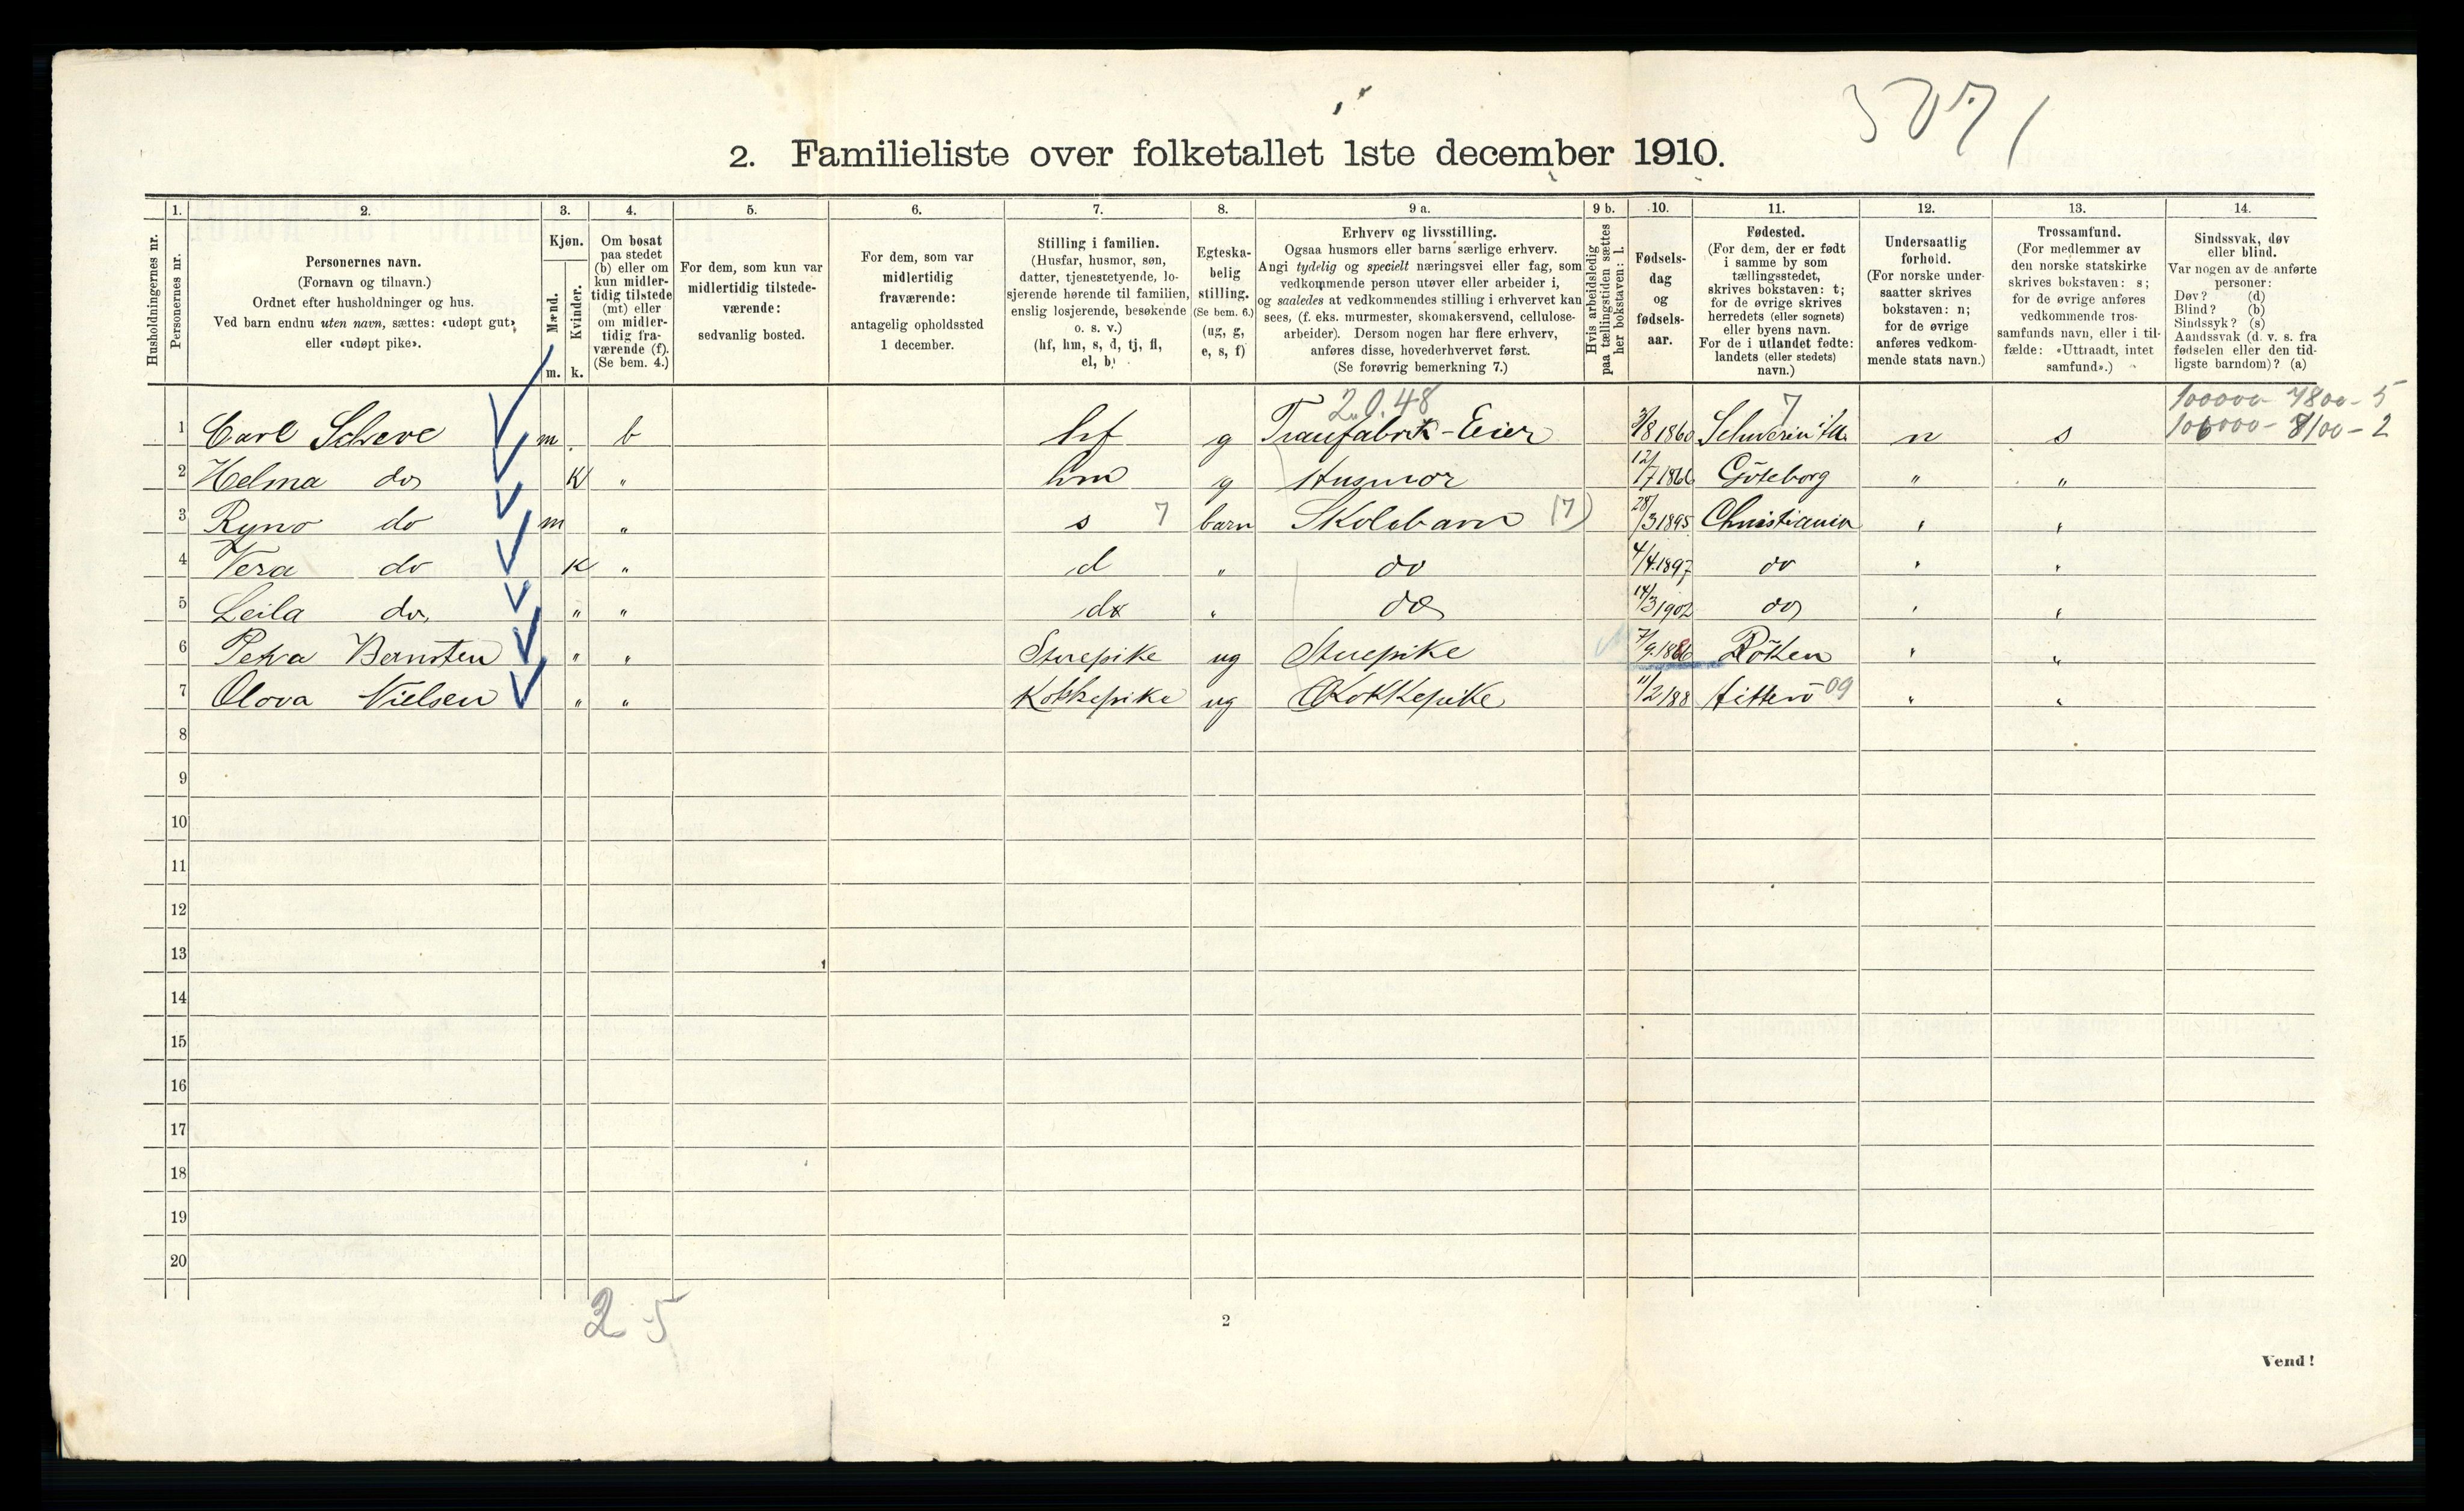 5071
2. Familieliste over folketallet 1ste december 1910.
Husholdningernes nr.
1. Personernes nr.
2. Personernes navn.
(Fornavn og tilnavn.)
Ordnet efter husholdninger og hus.
Ved barn endnu uten navn, sættes: «udøpt gut»
eller «udøpt pike».
3. Kjøn.
Mænd. m.
Kvinder. k.
4. Om bosat
paa stedet
(b) eller om
kun midler-
tidig tilstede
(mt) eller
om midler-
tidig fra-
værende (f).
(Se bem. 4.)
5. For dem, som kun var
midlertidig tilstede-
værende:
sedvanlig bosted.
6. For dem, som var
midlertidig
fraværende:
antagelig opholdssted
1 december.
7. Stilling i familien.
(Husfar, husmor, søn,
datter, tjenestetyende, lo-
sjerende hørende til familien,
enslig losjerende, besøkende
o. s. v.)
(hf, hm, s, d, tj, fl,
el, b)
8. Egteska-
belig
stilling.
(Se bem. 6.)
(ug, g,
e, s, f)
9 a. Erhverv og livsstilling.
Ogsaa husmors eller barns særlige erhverv.
Angi tydelig og specielt næringsvei eller fag, som
vedkommende person utøver eller arbeider i,
og saaledes at vedkommendes stilling i erhvervet kan
sees, (f. eks. murmester, skomakersvend, cellulose-
arbeider). Dersom nogen har flere erhverv,
anføres disse, hovederhvervet først.
(Se forøvrig bemerkning 7.)
9 b. Hvis arbeidsledig
paa tællingstiden sættes
her bokstaven: l.
10. Fødsels-
dag
og
fødsels-
aar.
11. Fødested.
(For dem, der er født
i samme by som
tællingsstedet,
skrives bokstaven: t;
for de øvrige skrives
herredets (eller sognets)
eller byens navn.
For de i utlandet fødte:
landets (eller stedets)
navn.)
12. Undersaatlig
forhold.
(For norske under-
saatter skrives
bokstaven: n;
for de øvrige
anføres vedkom-
mende stats navn.)
13. Trossamfund.
(For medlemmer av
den norske statskirke
skrives bokstaven: s;
for de øvrige anføres
vedkommende tros-
samfunds navn, eller i til-
fælde: «Uttraadt, intet
samfund».)
14. Sindssvak, døv
eller blind.
Var nogen av de anførte
personer:
Døv? (d)
Blind? (b)
Sindssyk? (s)
Aandssvak (d. v. s. fra
fødselen eller den tid-
ligste barndom)? (a)
2.0.48 7 100000 - 7800 - 5
1 Carl Scheve m b hf g Tranfabrik-Eier 3/8 1860 Schwerin n s 100000 - 8100 - 2
2 Helma do K " hm g Husmor 12/7 1866 Göteborg " "
3 Ryno do m " s 7 barn Skolebarn (7) 28/3 1895 Christiania " "
4 Vera do K " d " do 4/4 1897 do " "
5 Leila do " " d " do 14/3 1902 do " "
6 Petra Bernsten " " Stuepike ug Stuepike 7/9 1886 Röken " "
7 Olova Nielsen " " Kokkepike ug Kokkepike 11/2 188 Hitterö 09 " "
8
9
10
11
12
13
14
15
16
17
18
19
20
2 5
2
Vend!